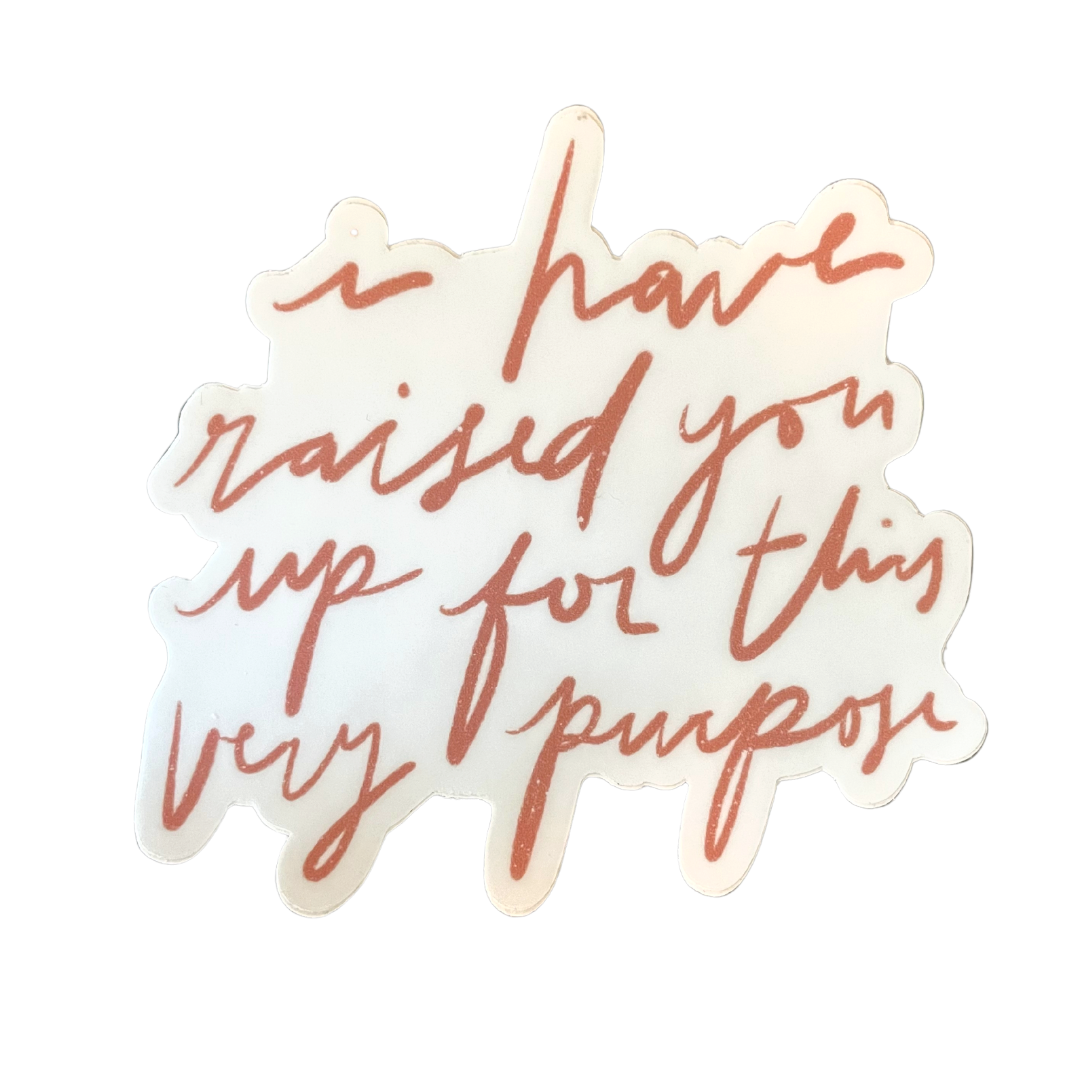 i have
raised you
up for this
very purpose